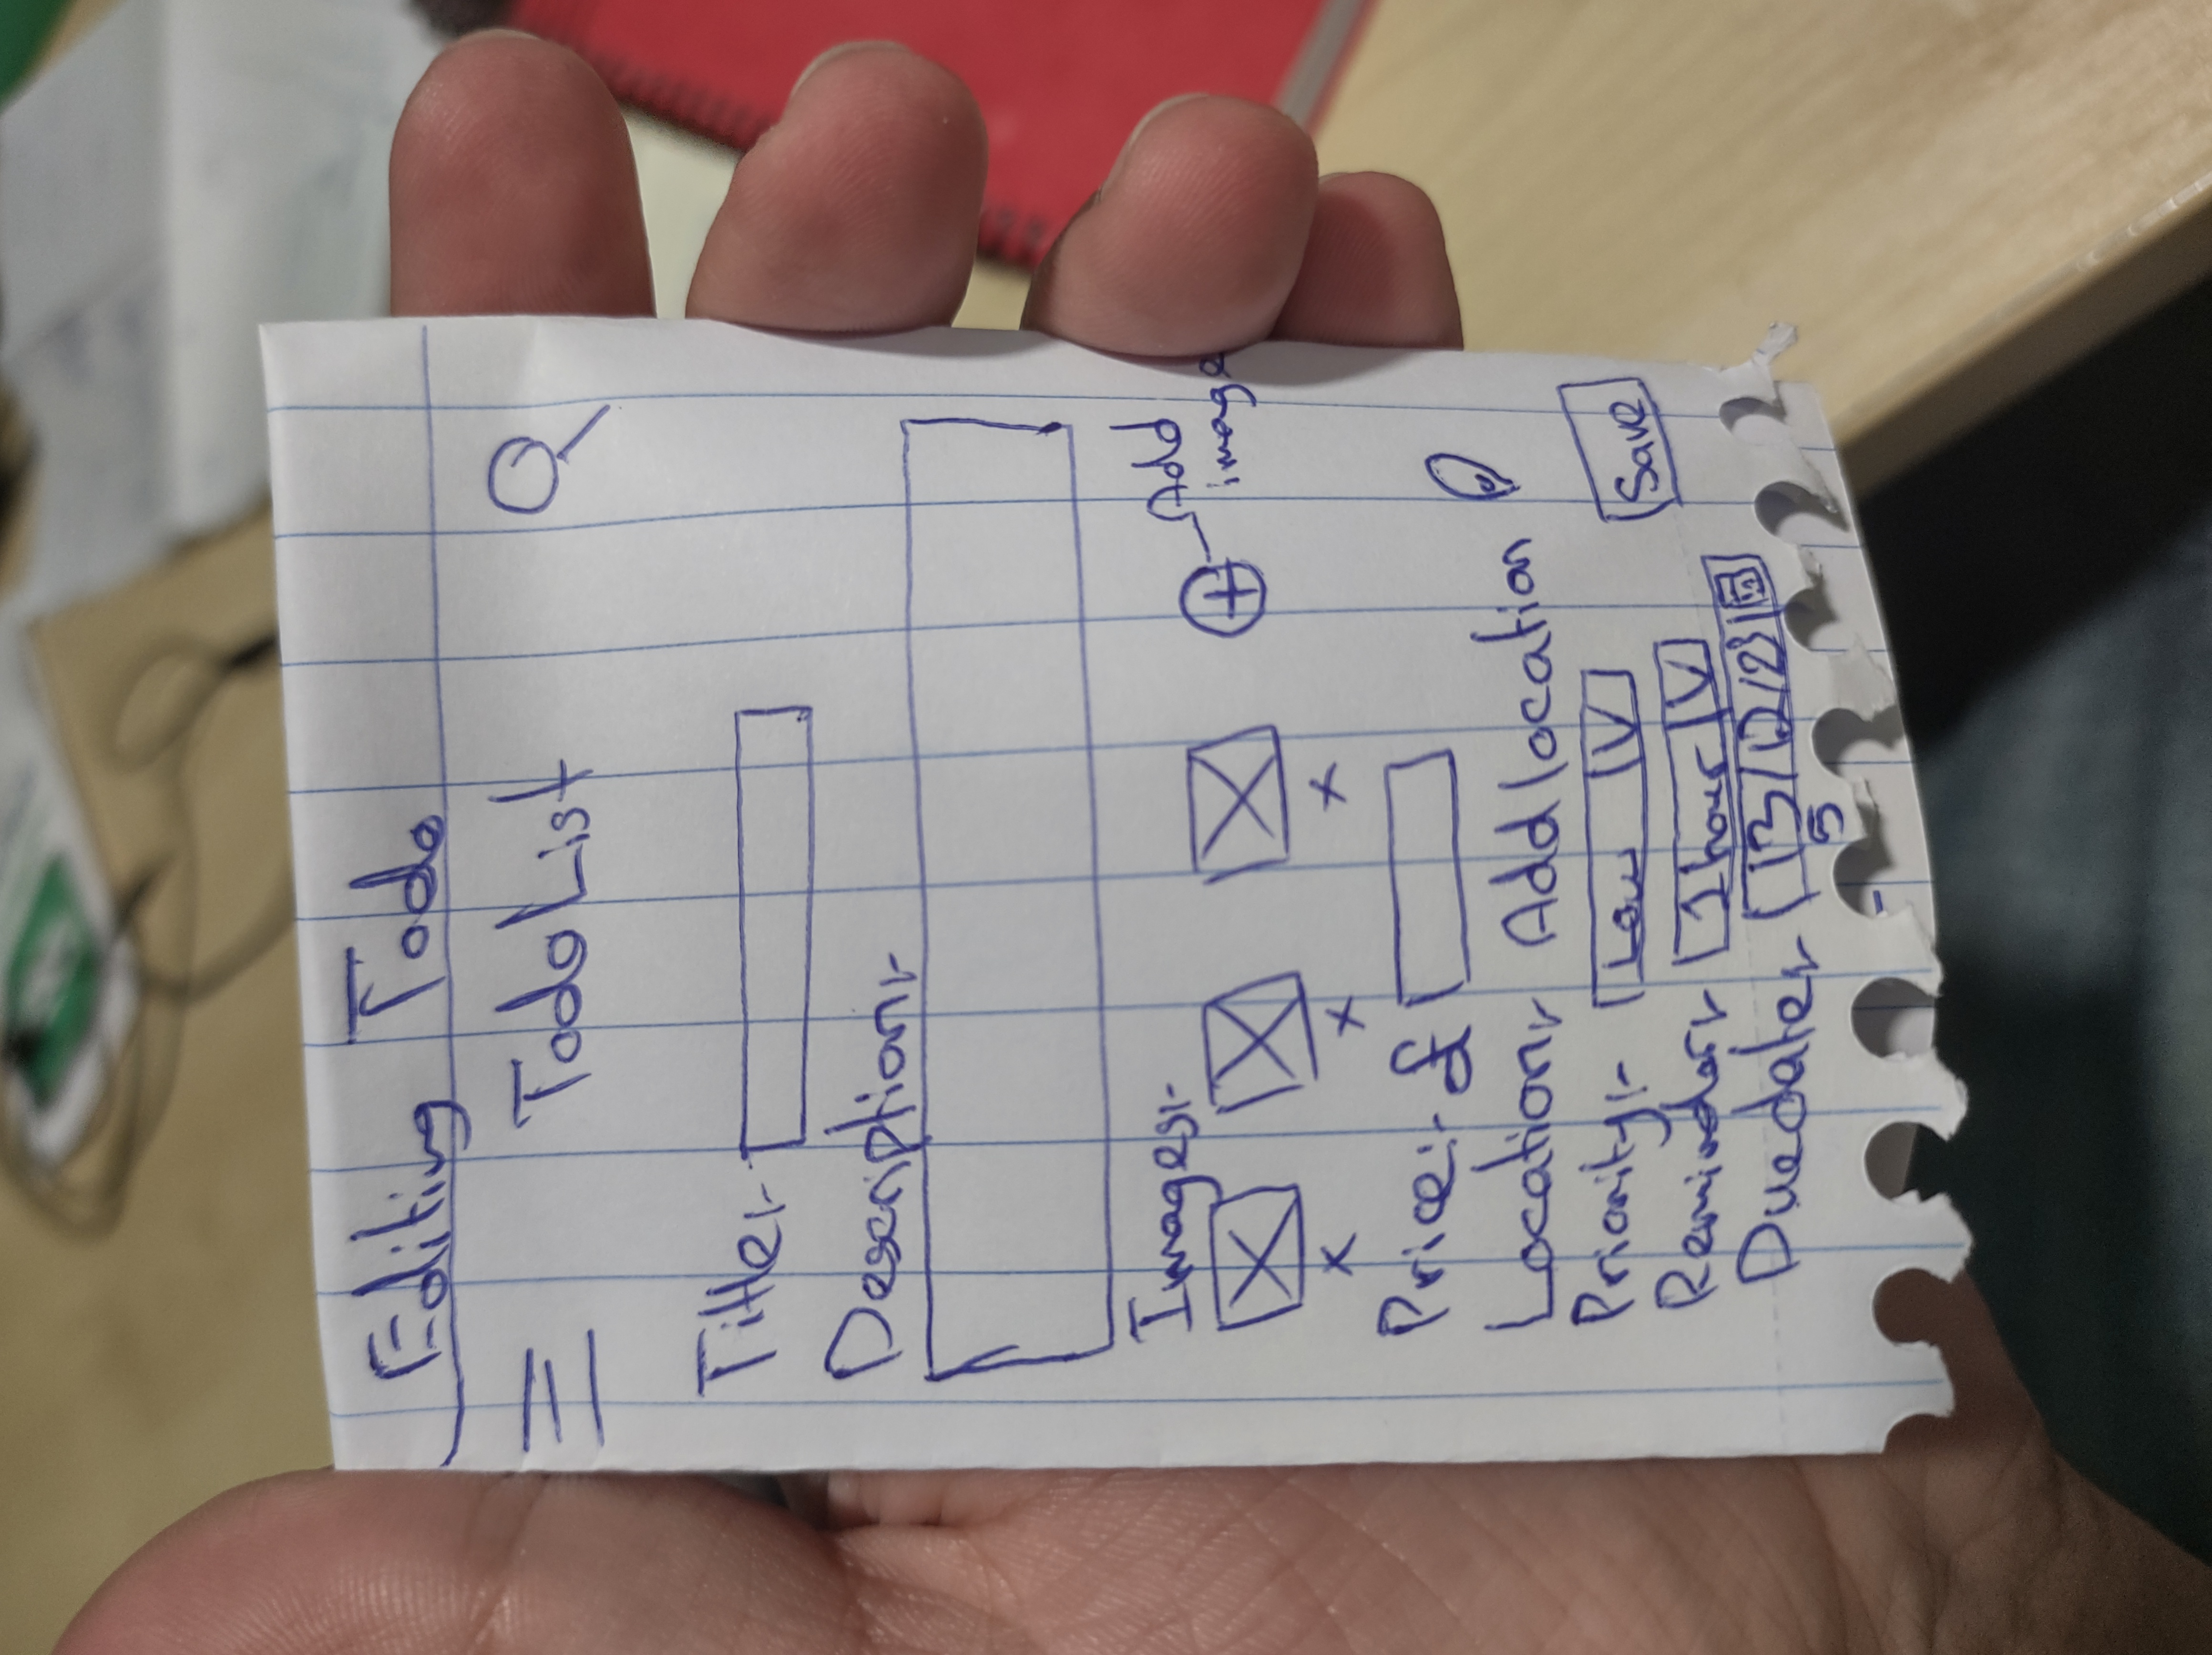 Editing Todo
Todo List
Title:-
Description:-
Images:-
Add
image
x x x
Price:- £
Location:- Add location
Priority:- Low V
Save
Reminder:- 1 hour V
Due date:- 13/12/23
5